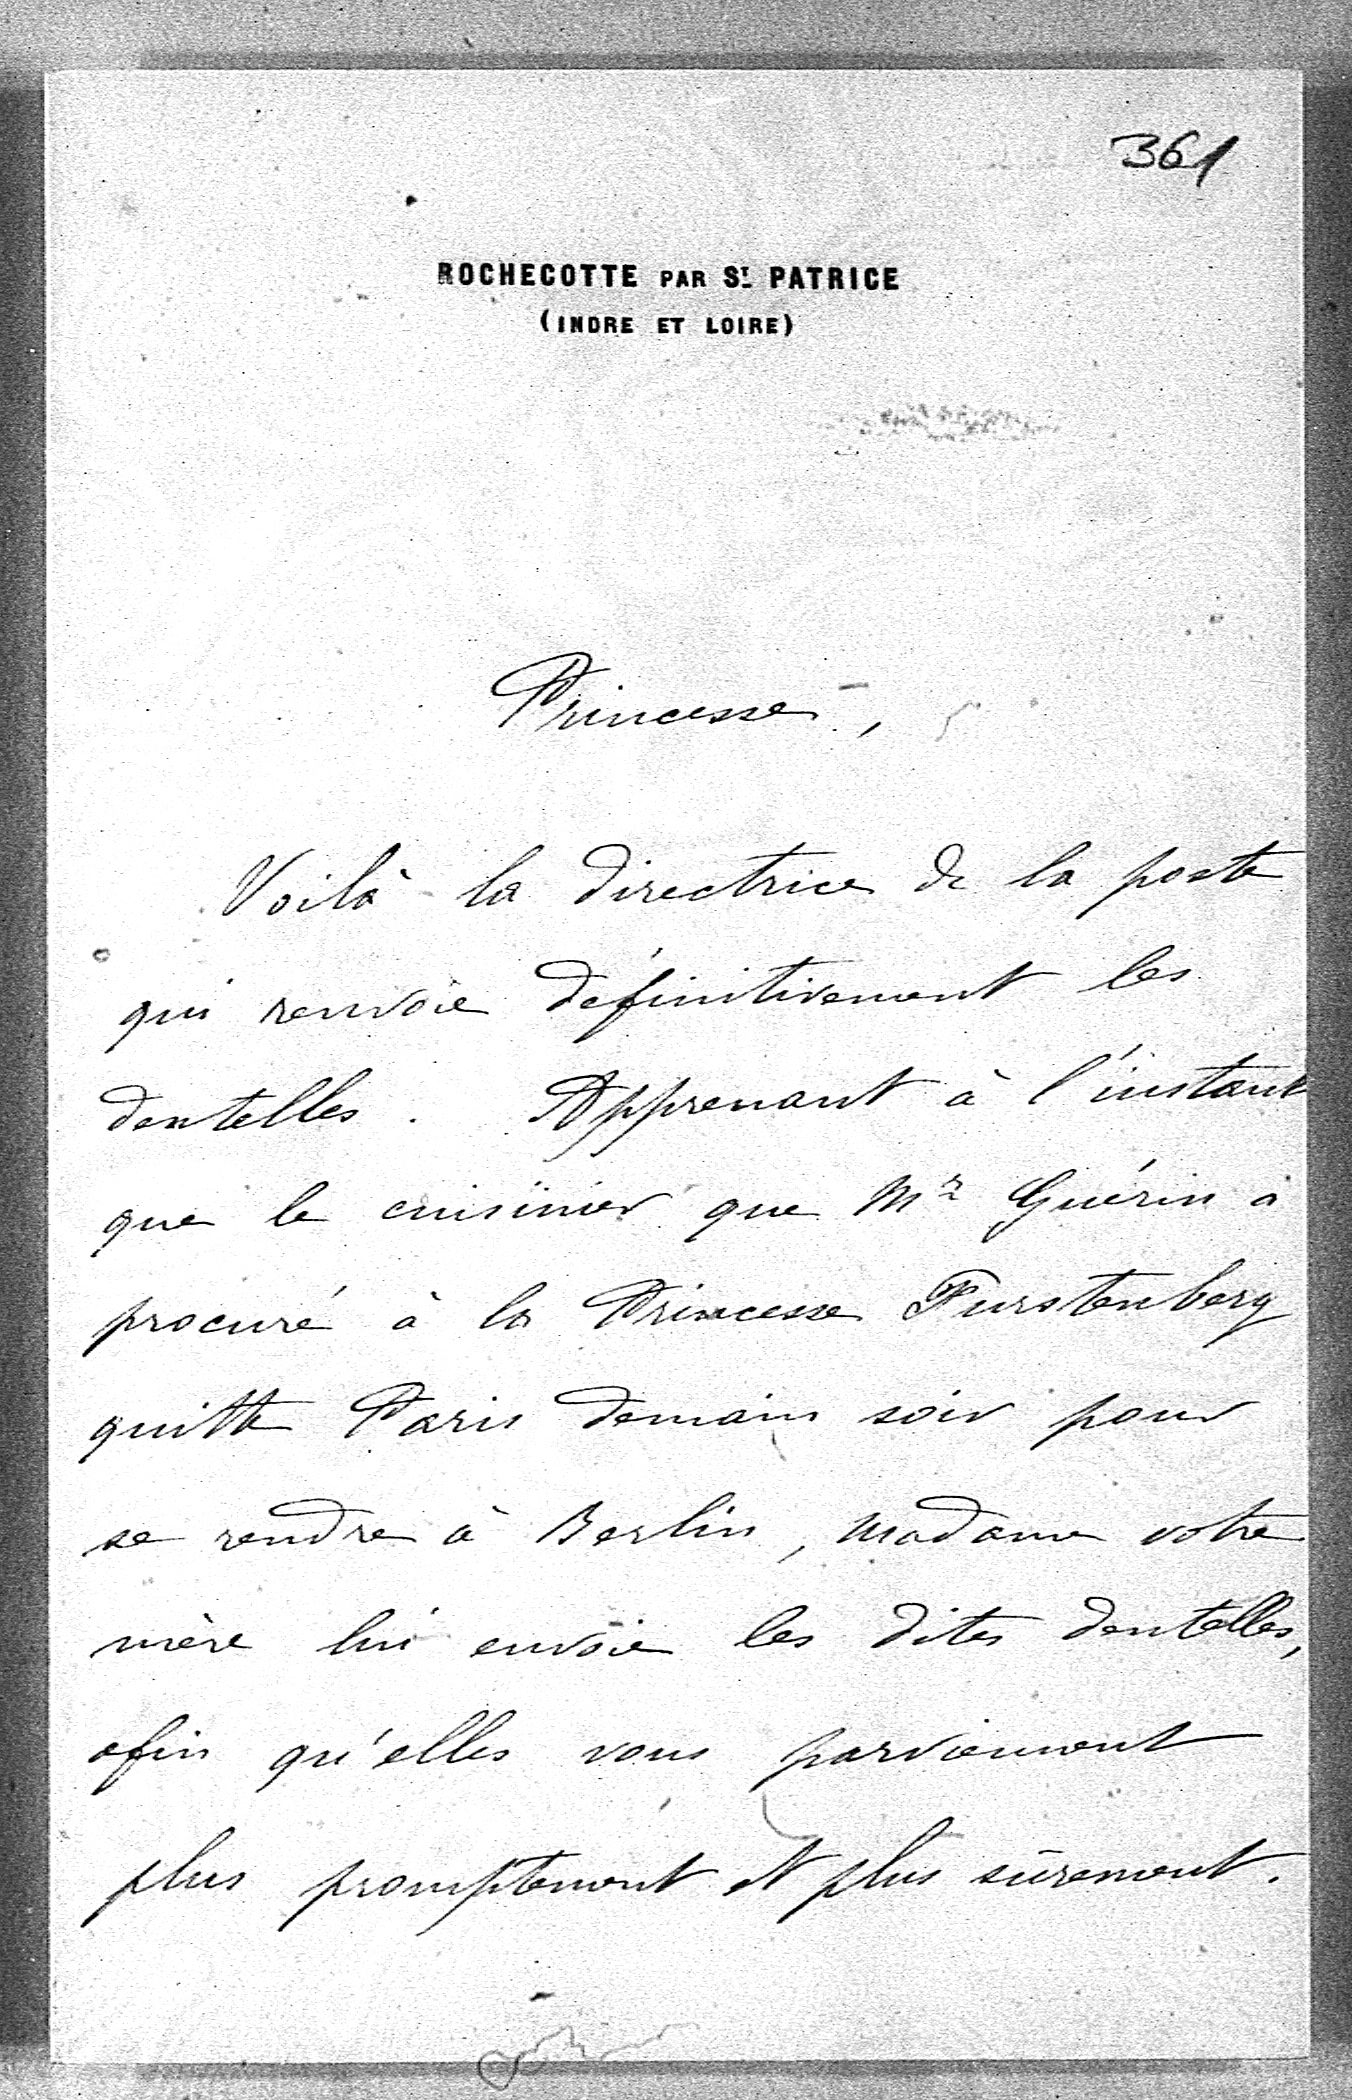 361
ROCHECOTTE PAR ST PATRICE
(INDRE ET LOIRE)
Princesse,
Voilà la directrice de la poste
qui renvoie définitivement les
dentelles. Apprenant à l'instant
que le cuisinier que Mr Guérin a
procuré à la Princesse Furstenberg
quitte Paris demain soir pour
se rendre à Berlin, madame votre
mère lui envoie les dites dentelles,
afin qu'elles vous parviennent
plus promptement et plus sûrement.